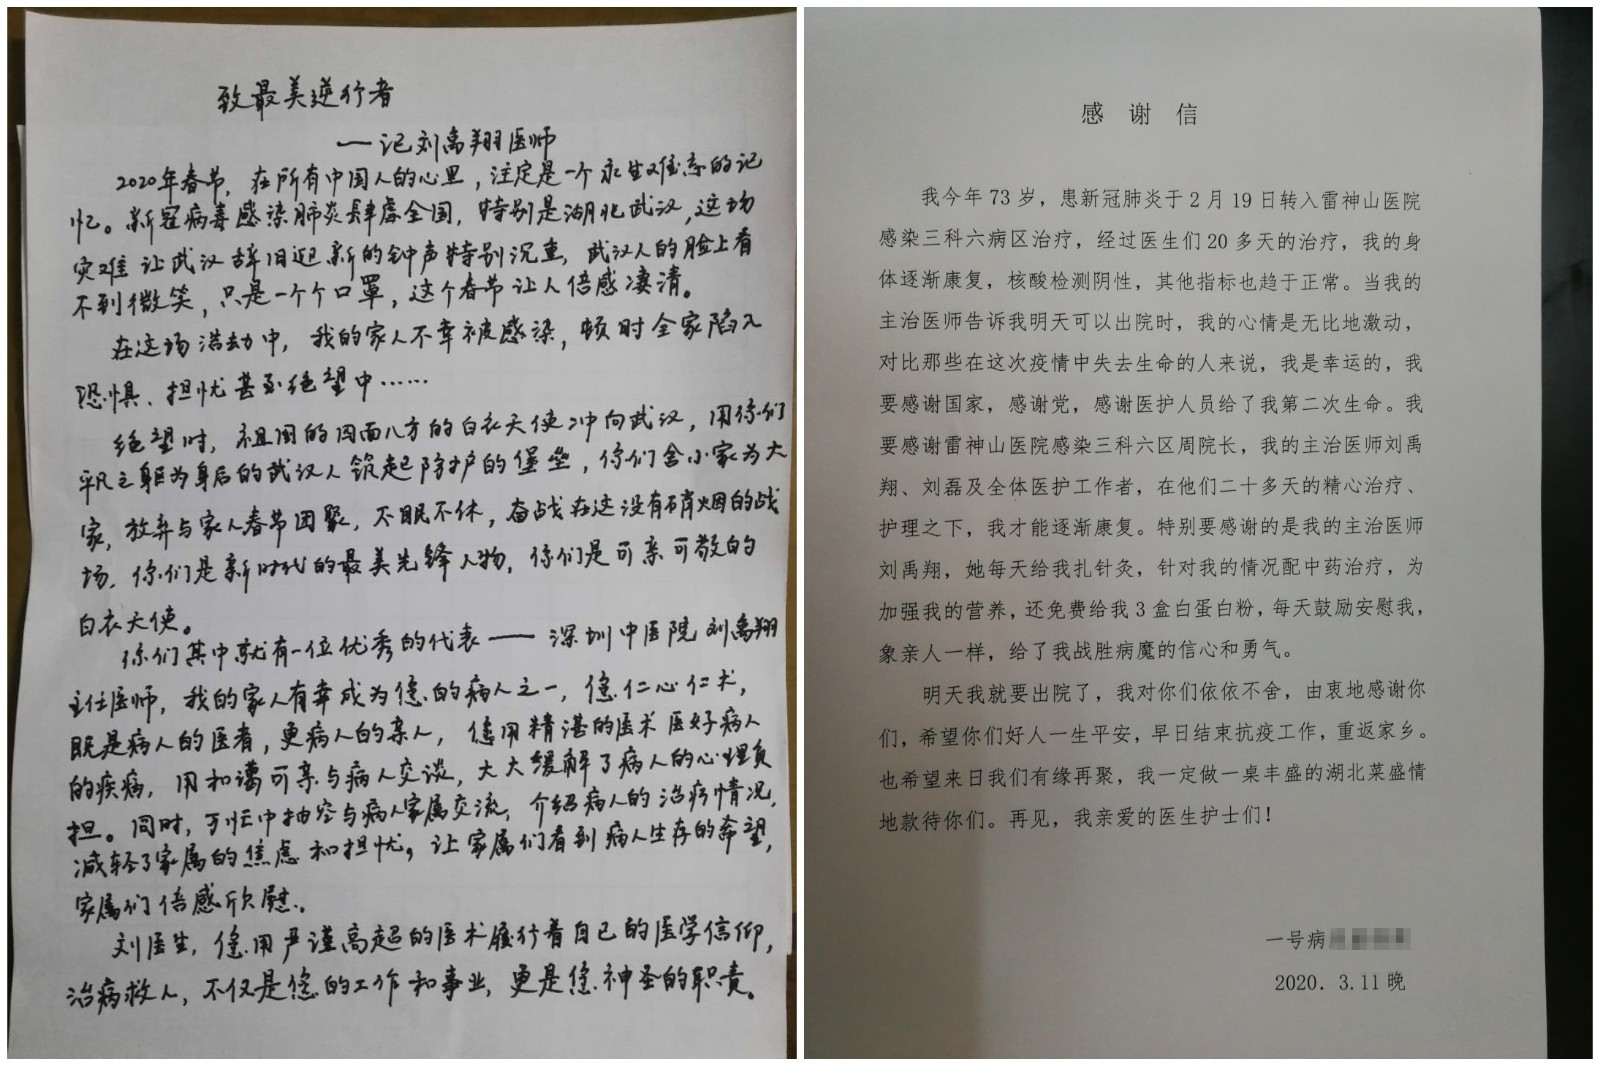 致最美逆行者
——记刘禹翔医师
2020年春节，在所有中国人的心里，注定是一个永生难忘的记
忆。新冠病毒感染肺炎肆虐全国，特别是湖北武汉，这场
灾难让武汉辞旧迎新的钟声特别沉重，武汉人的脸上看
不到微笑，只是一个个口罩，这个春节让人倍感凄清。
在这场浩劫中，我的家人不幸被感染，顿时全家陷入
恐惧、担忧甚至绝望中……
绝望时，祖国的四面八方的白衣天使冲向武汉，用你们
平凡之躯为身后的武汉人筑起防护的堡垒，你们舍小家为大
家，放弃与家人春节团聚，不眠不休，奋战在这没有硝烟的战
场，你们是新时代的最美先锋人物，你们是可亲可敬的
白衣天使。
你们其中就有一位优秀的代表——深圳中医院刘禹翔
主任医师，我的家人有幸成为您的病人之一，您仁心仁术，
既是病人的医者，更病人的亲人，您用精湛的医术医好病人
的疾病，用和蔼可亲与病人交谈，大大缓解了病人的心理负
担。同时，万忙中抽空与病人家属交流，介绍病人的治疗情况，
减轻了家属的焦虑和担忧，让家属们看到病人生存的希望，
家属们倍感欣慰。
刘医生，您用严谨高超的医术履行着自己的医学信仰，
治病救人，不仅是您的工作和事业，更是您神圣的职责。
感 谢 信
我今年 73 岁，患新冠肺炎于 2 月 19 日转入雷神山医院
感染三科六病区治疗，经过医生们 20 多天的治疗，我的身
体逐渐康复，核酸检测阴性，其他指标也趋于正常。当我的
主治医师告诉我明天可以出院时，我的心情是无比地激动，
对比那些在这次疫情中失去生命的人来说，我是幸运的，我
要感谢国家，感谢党，感谢医护人员给了我第二次生命。我
要感谢雷神山医院感染三科六区周院长，我的主治医师刘禹
翔、刘磊及全体医护工作者，在他们二十多天的精心治疗、
护理之下，我才能逐渐康复。特别要感谢的是我的主治医师
刘禹翔，她每天给我扎针灸，针对我的情况配中药治疗，为
加强我的营养，还免费给我 3 盒白蛋白粉，每天鼓励安慰我，
象亲人一样，给了我战胜病魔的信心和勇气。
明天我就要出院了，我对你们依依不舍，由衷地感谢你
们，希望你们好人一生平安，早日结束抗疫工作，重返家乡。
也希望来日我们有缘再聚，我一定做一桌丰盛的湖北菜盛情
地款待你们。再见，我亲爱的医生护士们！
一号病
2020．3.11 晚